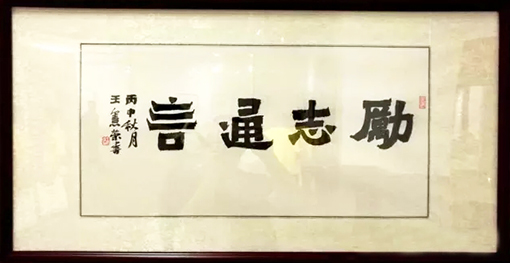 勵志通言
丙申秋月
王憲榮書